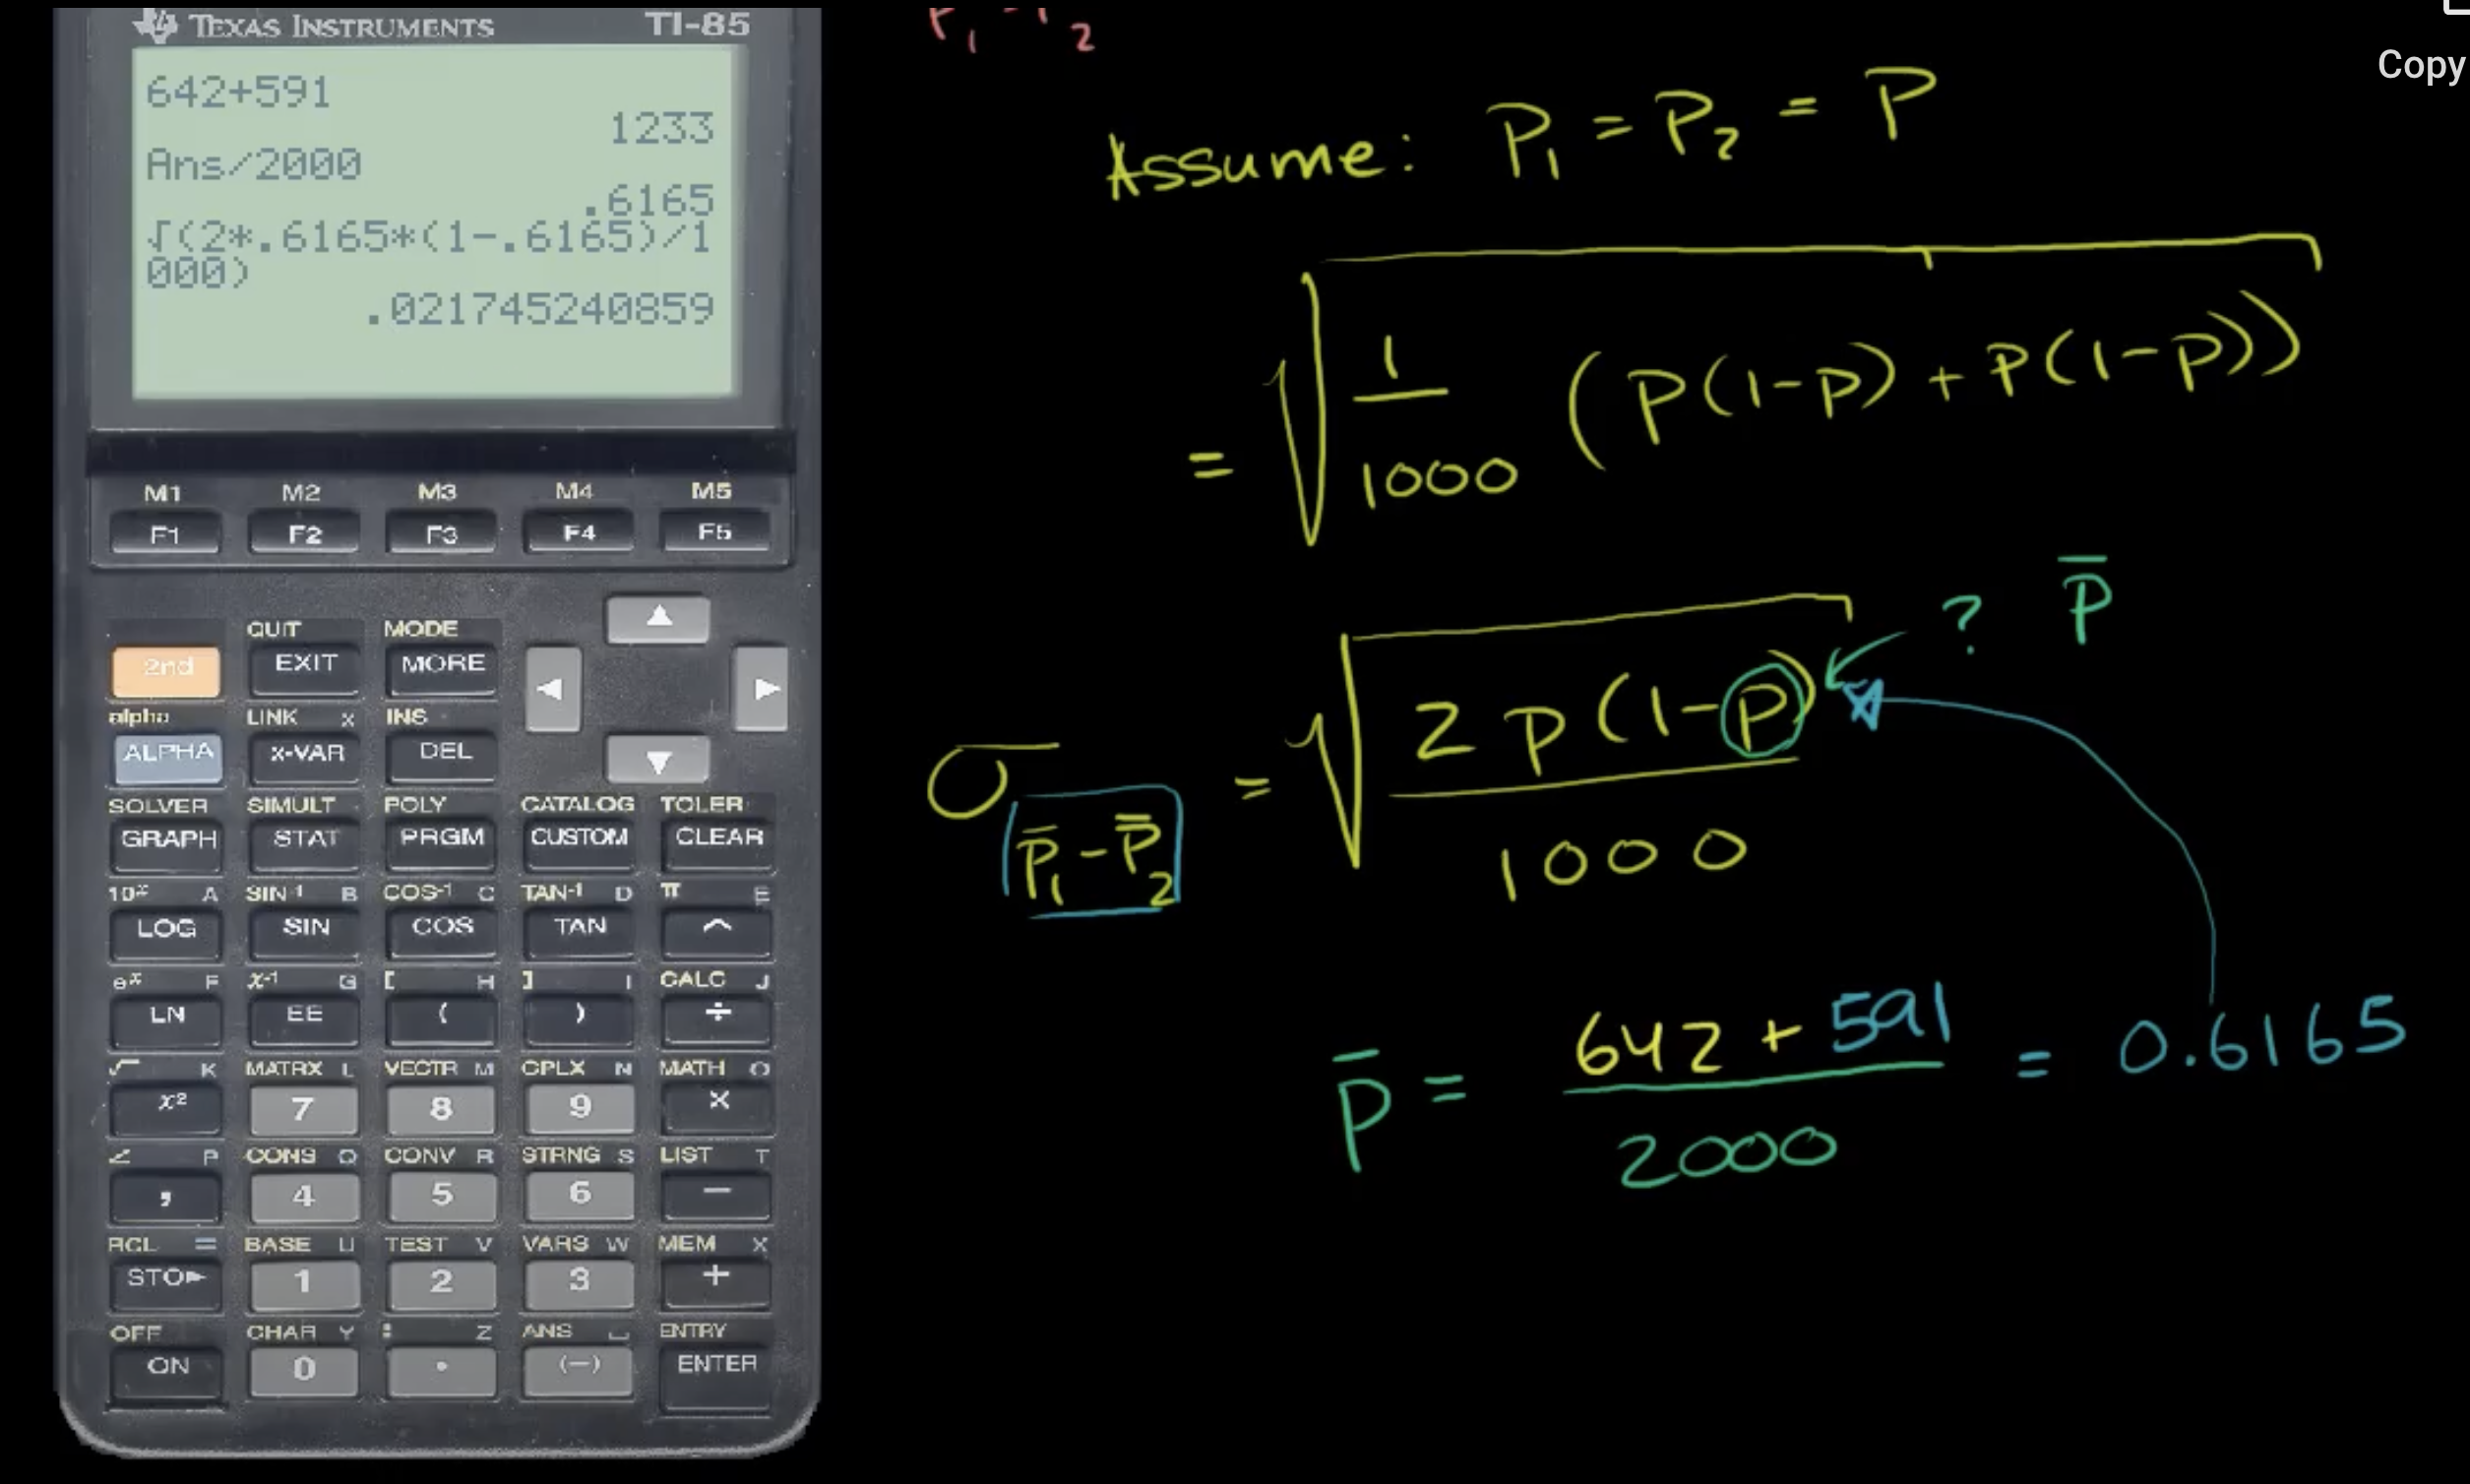 TEXAS INSTRUMENTS TI-85
642+591
1233
Ans/2000
.6165
√(2*.6165*(1-.6165)/1
000)
.021745240859
M1 M2 M3 M4 M5
F1 F2 F3 F4 F5
QUIT MODE
2nd EXIT MORE
alpha LINK x INS
ALPHA x-VAR DEL
SOLVER SIMULT POLY CATALOG TOLER
GRAPH STAT PRGM CUSTOM CLEAR
10ˣ A SIN⁻¹ B COS⁻¹ C TAN⁻¹ D π E
LOG SIN COS TAN ^
eˣ F x⁻¹ G [ H ] I CALC J
LN EE ( ) ÷
√ K MATRX L VECTR M CPLX N MATH O
x² 7 8 9 ×
∠ P CONS Q CONV R STRNG S LIST T
, 4 5 6 −
RCL = BASE U TEST V VARS W MEM X
STO▸ 1 2 3 +
OFF CHAR Y : Z ANS ⎵ ENTRY
ON 0 . (−) ENTER
Copy
Assume: P₁ = P₂ = P
= √(1/1000 (P(1-P) + P(1-P)))
? P̄
σ P̄₁-P̄₂ = √(2P(1-P)/1000)
P̄ = (642 + 591)/2000 = 0.6165